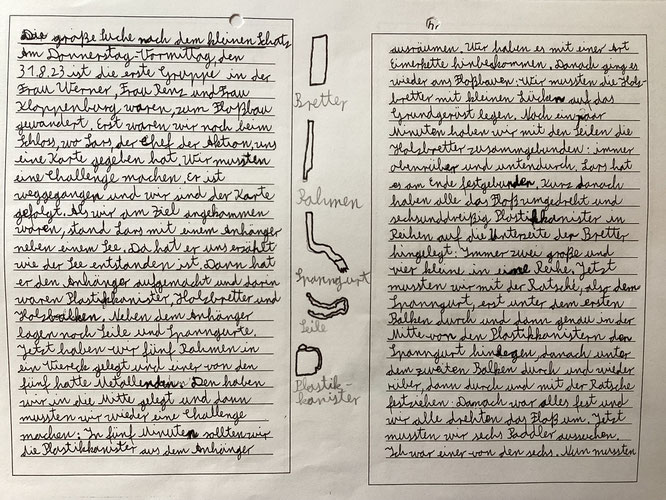 Die große Suche nach dem kleinen Schatz
Am Donnerstag-Vormittag, den
31.8.23 ist die erste Gruppe, in der
Frau Werner, Frau Renz und Frau
Kloppenburg waren, zum Floßbau
gewandert. Erst waren wir noch beim
Schloss, wo Lars, der Chef der Aktion, uns
eine Karte gegeben hat. Wir mussten
eine Challenge machen. Er ist
weggegangen und wir sind der Karte
gefolgt. Als wir am Ziel angekommen
waren, stand Lars mit einem Anhänger
neben einem See. Da hat er uns erzählt
wie der See entstanden ist. Dann hat
er den Anhänger aufgemacht und darin
waren Plastikkanister, Holzbretter und
Holzbalken. Neben dem Anhänger
lagen noch Seile und Spanngurte.
Jetzt haben wir fünf Rahmen in
ein Viereck gelegt und einer von den
fünf hatte Metallenden. Den haben
wir in die Mitte gelegt und dann
mussten wir wieder eine Challenge
machen: In fünf Minuten sollten wir
die Plastikkanister aus dem Anhänger
Bretter
Rahmen
Spanngurt
Seile
Plastik-
kanister
ausräumen. Wir haben es mit einer Art
Eimerkette hinbekommen. Danach ging es
wieder ans Floßbauen. Wir mussten die Holz-
bretter mit kleinen Lücken auf das
Grundgerüst legen. Nach ein paar
Minuten haben wir mit den Seilen die
Holzbretter zusammgebunden: immer
obenrüber und untendurch. Lars hat
es am Ende festgebunden. Kurz danach
haben alle das Floß umgedreht und
sechsunddreißig Plastikkanister in
Reihen auf die Unterseite der Bretter
hingelegt: Immer zwei große und
vier kleine in eine Reihe. Jetzt
mussten wir mit der Ratsche, also dem
Spanngurt, erst unter dem ersten
Balken durch und dann genau in der
Mitte von den Plastikkanistern den
Spanngurt hinlegen, danach unter
dem zweiten Balken durch und wieder
rüber, dann durch und mit der Ratsche
festziehen. Danach war alles fest und
wir alle drehten das Floß um. Jetzt
mussten wir sechs Paddler aussuchen.
Ich war einer von den sechs. Nun mussten